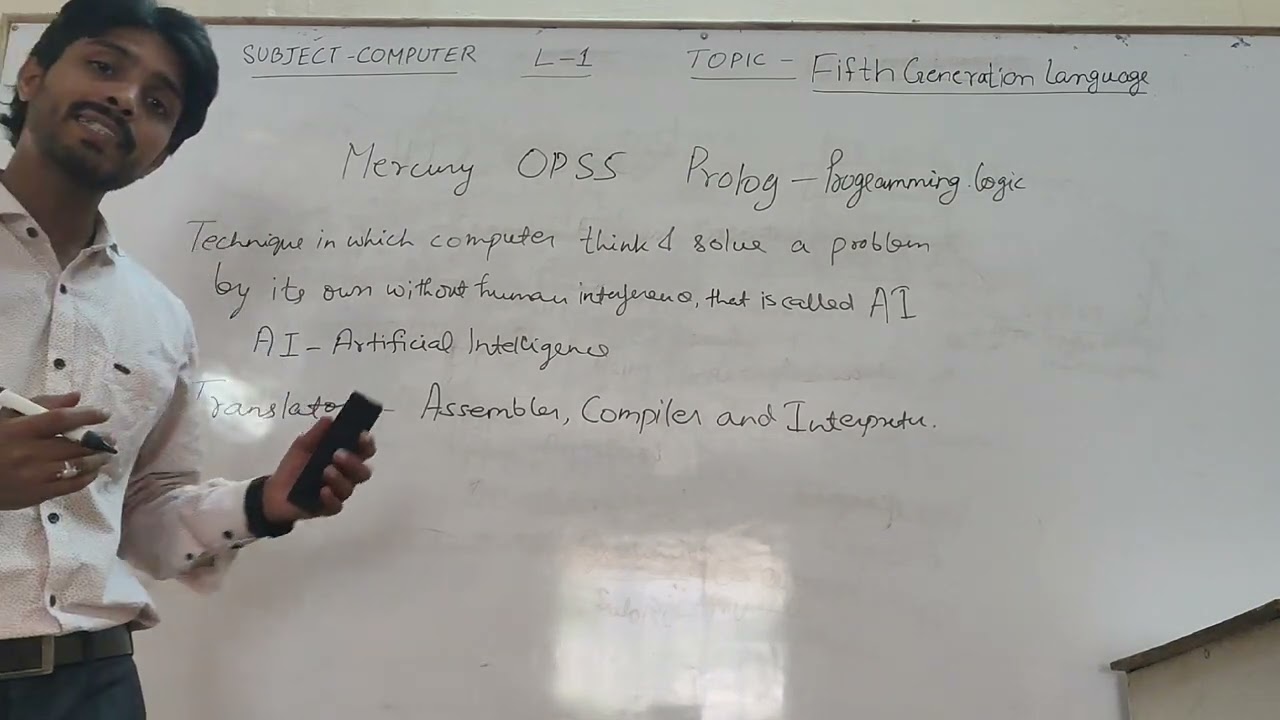 SUBJECT-COMPUTER L-1 TOPIC - Fifth Generation Language
Mercury OPS5 Prolog - Programming Logic
Technique in which computer think & solve a problem
by its own without human interference, that is called AI
AI - Artificial Intelligence
Translator - Assembler, Compiler and Interpreter.